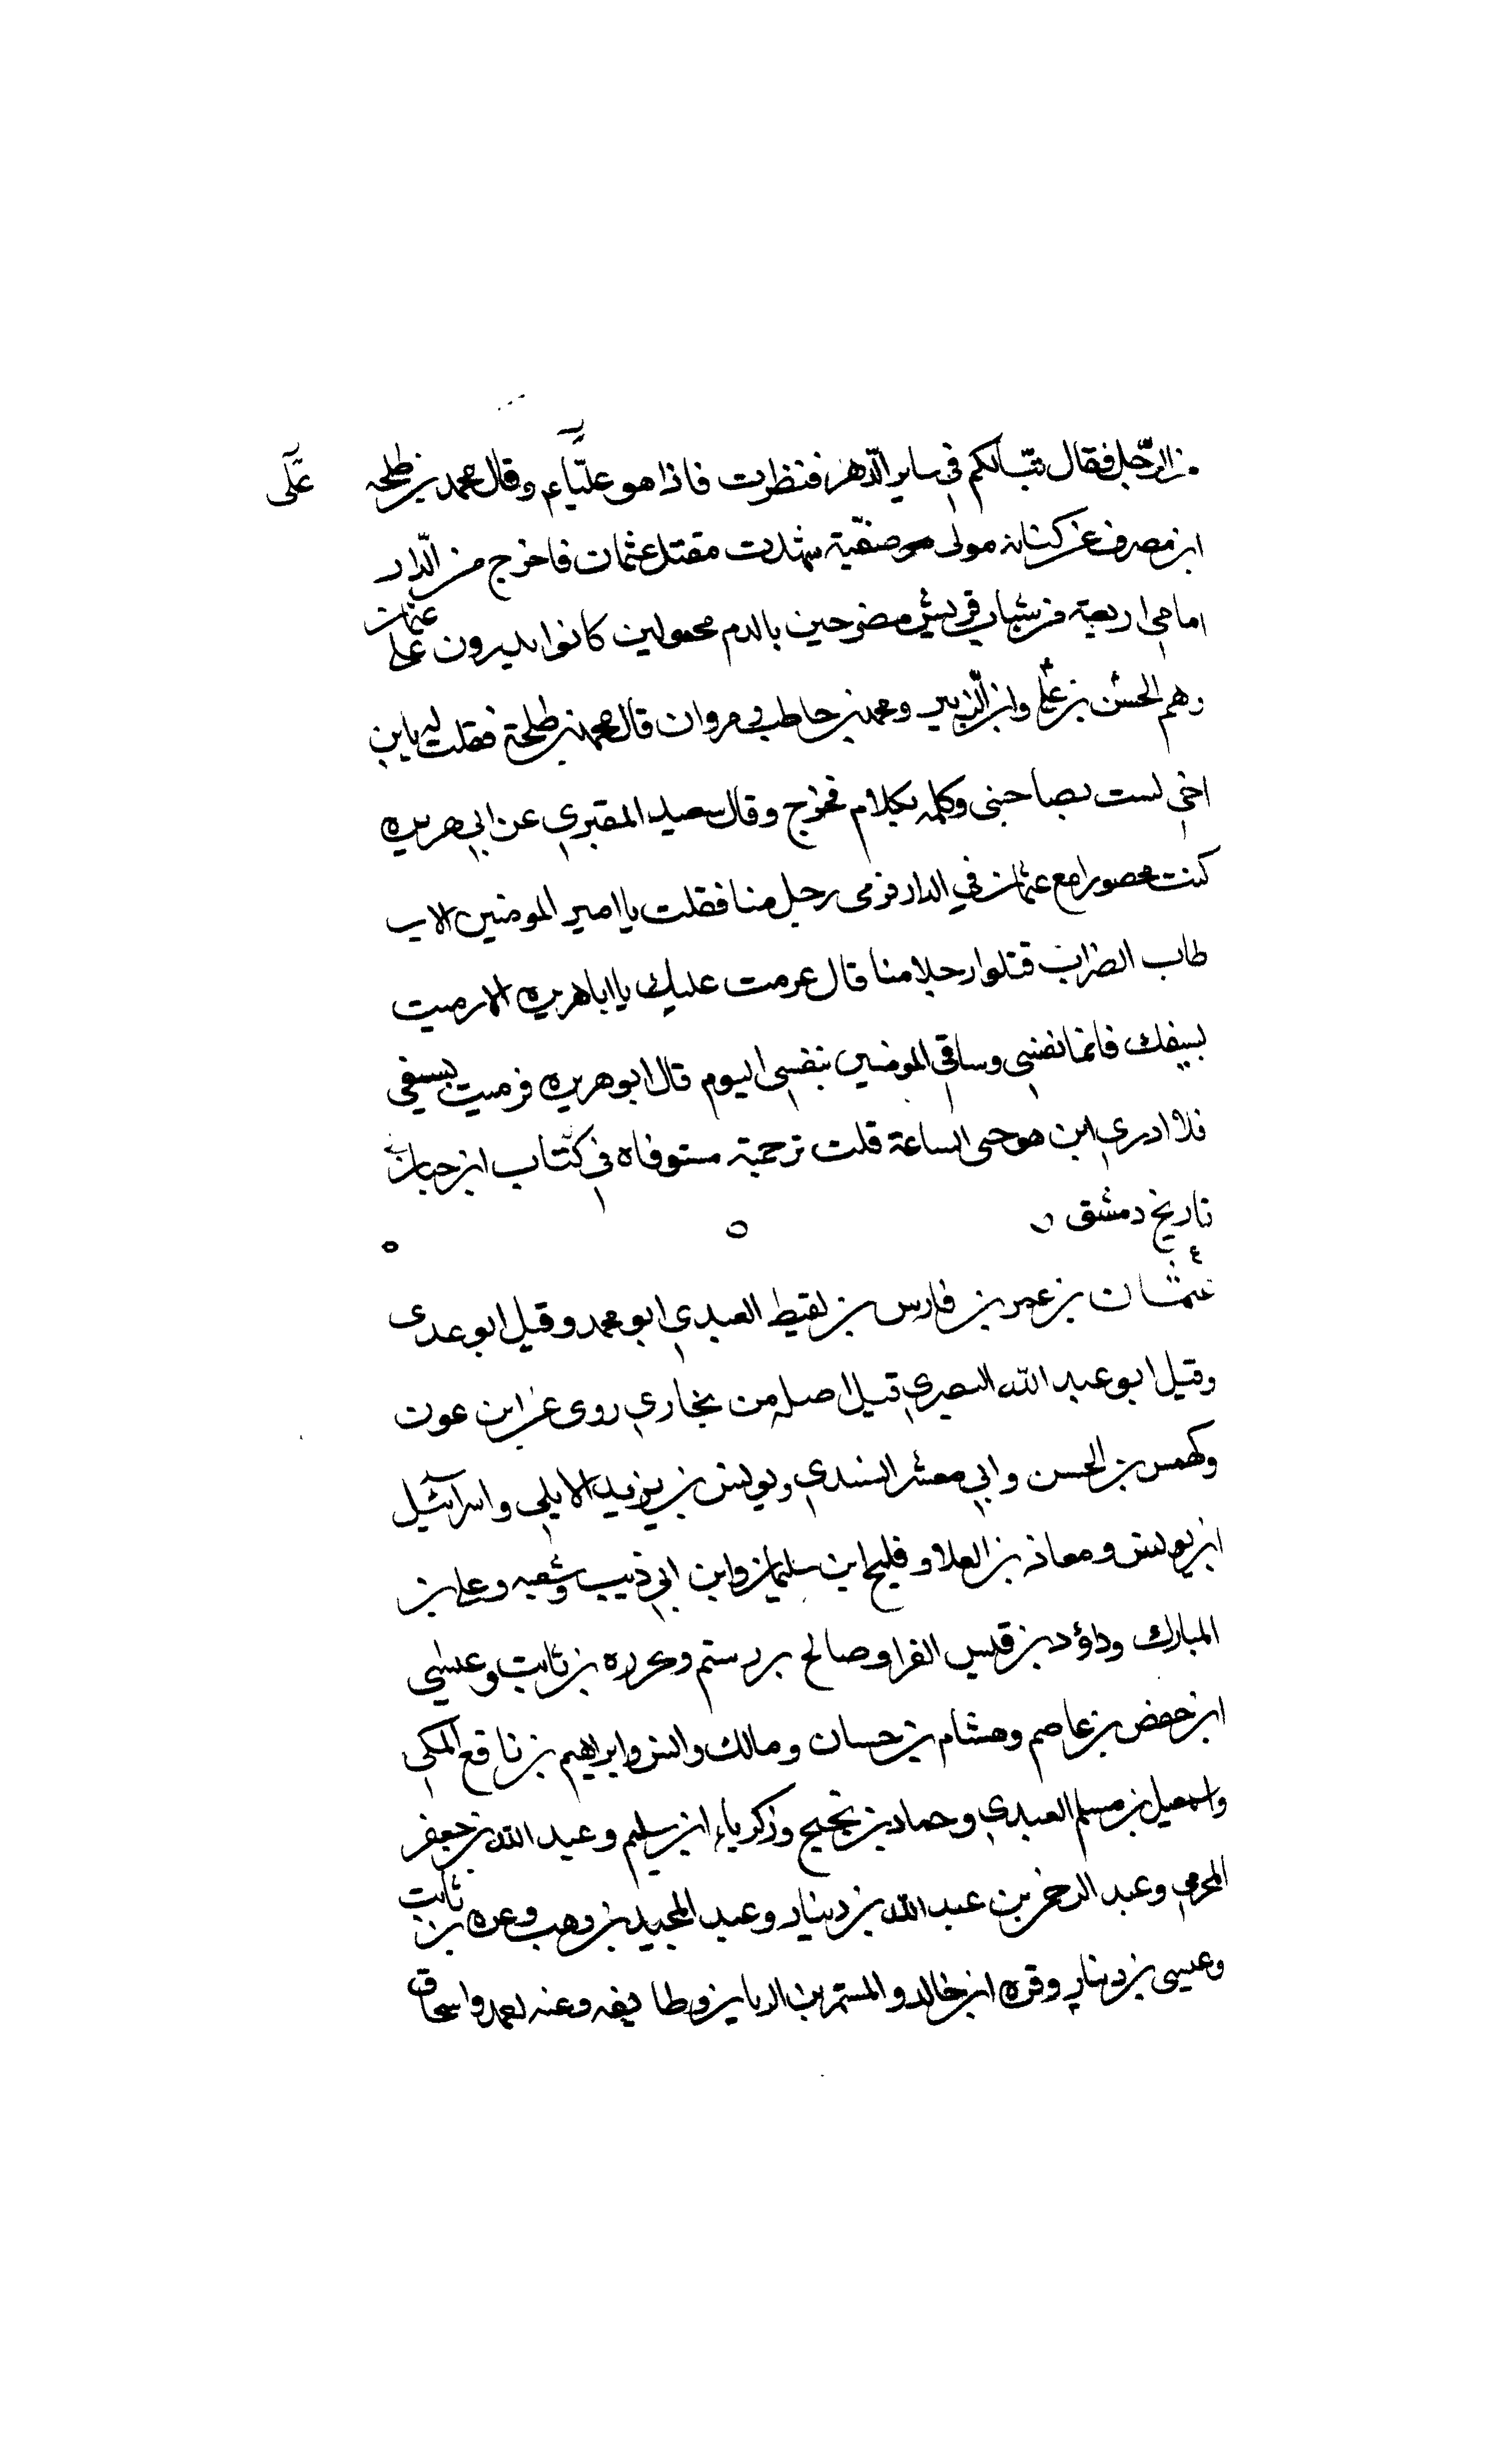 من الرّجل فقال تبّا لكم في ساير الدّهر فنظرت فاذا هو عليّاء وقال محمد بن طلحه علّى
ابن مصرف عن كنانه مولى صفيّة شهدت مقتل عثمان فاخرج من الدّار
امامي اربعة من شباب قريش مضرجين بالدم محمولين كانوا يدرون على عثمان
وهم الحسن بن علي وابن الزّبير ومحمد بن حاطب ومروان قال محمد بن طلحة فقلت له يابن
اخي لست بصاحبي وكلمه بكلام فخرج وقال سعيد المقبري عن ابي هريره
كنت محصورا مع عثمان في الدار فرمى رجل منا فقلت يا امير المومنين الان
طاب الضراب قتلوا رجلا منا قال عزمت عليك يا ابا هريره الا رميت
بسيفك فانما نفسي وساقي المومنين بنفسي اليوم قال ابو هريره فرميت بسيفي
فلا ادري اين هو حتى الساعة قلت ترجمته مستوفاه في كتاب ابن حبان
تاريخ دمشق
ع
عثمان بن عمر بن فارس بن لقيط العبدي ابو محمد وقيل ابو عدى
وقيل ابو عبد الله البصري قيل اصله من بخاري روى عن ابن عون
وكهمس بن الحسن وابي معشر السندي ويونس بن يزيد الايلي واسرآئيل
ابن يونس ومعاذ بن العلا وفليح ابن سليمان وابن ابي ذيب وشعبه وعلي بن
المبارك وداؤد بن قيس الفرا وصالح بن رستم وعزره بن ثابت وعيسى
ابن حفص بن عاصم وهشام بن حسان ومالك وانس وابراهيم بن نافع المكي
واسمعيل بن مسلم العبدي وحماد بن نجيح وزكرياء ابن سليم وعبد الله بن جعفر
المخرمي وعبد الرحمن بن عبد الله بن دينار وعبد المجيد بن وهب وعزره بن ثابت
وعيسى بن دينار وقره ابن خالد والمستمر بن الريان وطايفه وعنه احمد واسحاق